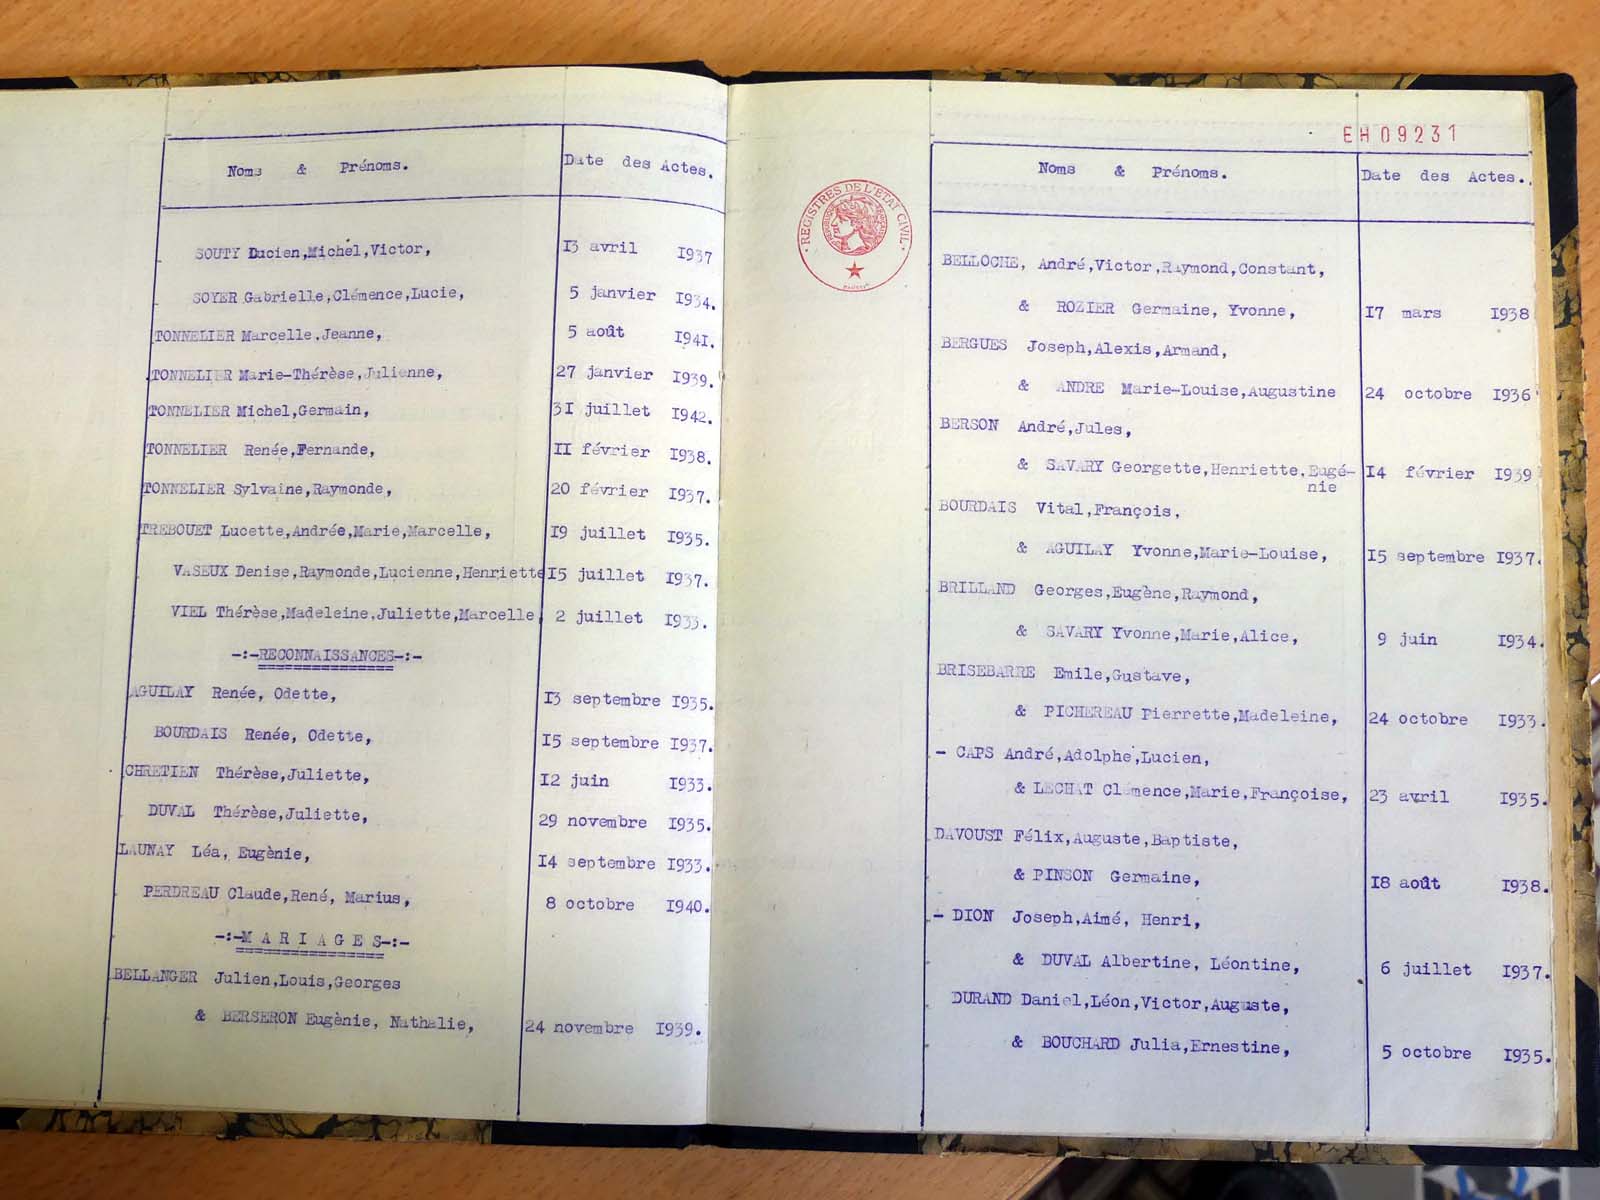 Noms & Prénoms. Date des Actes.
SOUTY Lucien,Michel,Victor, 13 avril 1937
SOYER Gabrielle,Clémence,Lucie, 5 janvier 1934.
TONNELIER Marcelle.Jeanne, 5 août 1941.
TONNELIER Marie-Thérèse,Julienne, 27 janvier 1939.
TONNELIER Michel,Germain, 31 juillet 1942.
TONNELIER Renée,Fernande, 11 février 1938.
TONNELIER Sylvaine,Raymonde, 20 février 1937.
TREBOUET Lucette,Andrée,Marie,Marcelle, 19 juillet 1935.
VASEUX Denise,Raymonde,Lucienne,Henriette 15 juillet 1937.
VIEL Thérèse,Madeleine,Juliette,Marcelle, 2 juillet 1933.
-:-RECONNAISSANCES-:-
AGUILAY Renée, Odette, 13 septembre 1935.
BOURDAIS Renée, Odette, 15 septembre 1937.
CHRETIEN Thérèse,Juliette, 12 juin 1933.
DUVAL Thérèse,Juliette, 29 novembre 1935.
LAUNAY Léa, Eugènie, 14 septembre 1933.
PERDREAU Claude,René, Marius, 8 octobre 1940.
-:-M A R I A G E S-:-
BELLANGER Julien,Louis,Georges
& BERSERON Eugènie, Nathalie, 24 novembre 1939.
EH09231
Noms & Prénoms. Date des Actes.
REGISTRES DE L'ETAT CIVIL
BELLOCHE, André,Victor,Raymond,Constant,
& ROZIER Germaine, Yvonne, 17 mars 1938
BERGUES Joseph,Alexis,Armand,
& ANDRE Marie-Louise,Augustine 24 octobre 1936
BERSON André,Jules,
& SAVARY Georgette,Henriette,Eugé- 14 février 1939
nie
BOURDAIS Vital,François,
& AGUILAY Yvonne,Marie-Louise, 15 septembre 1937.
BRILLAND Georges,Eugène,Raymond,
& SAVARY Yvonne,Marie,Alice, 9 juin 1934.
BRISEBARRE Emile,Gustave,
& PICHEREAU Pierrette,Madeleine, 24 octobre 1933.
- CAPS André,Adolphe,Lucien,
& LECHAT Clémence,Marie,Françoise, 23 avril 1935.
DAVOUST Félix,Auguste,Baptiste,
& PINSON Germaine, 18 août 1938.
- DION Joseph,Aimé, Henri,
& DUVAL Albertine, Léontine, 6 juillet 1937.
DURAND Daniel,Léon,Victor,Auguste,
& BOUCHARD Julia,Ernestine, 5 octobre 1935.